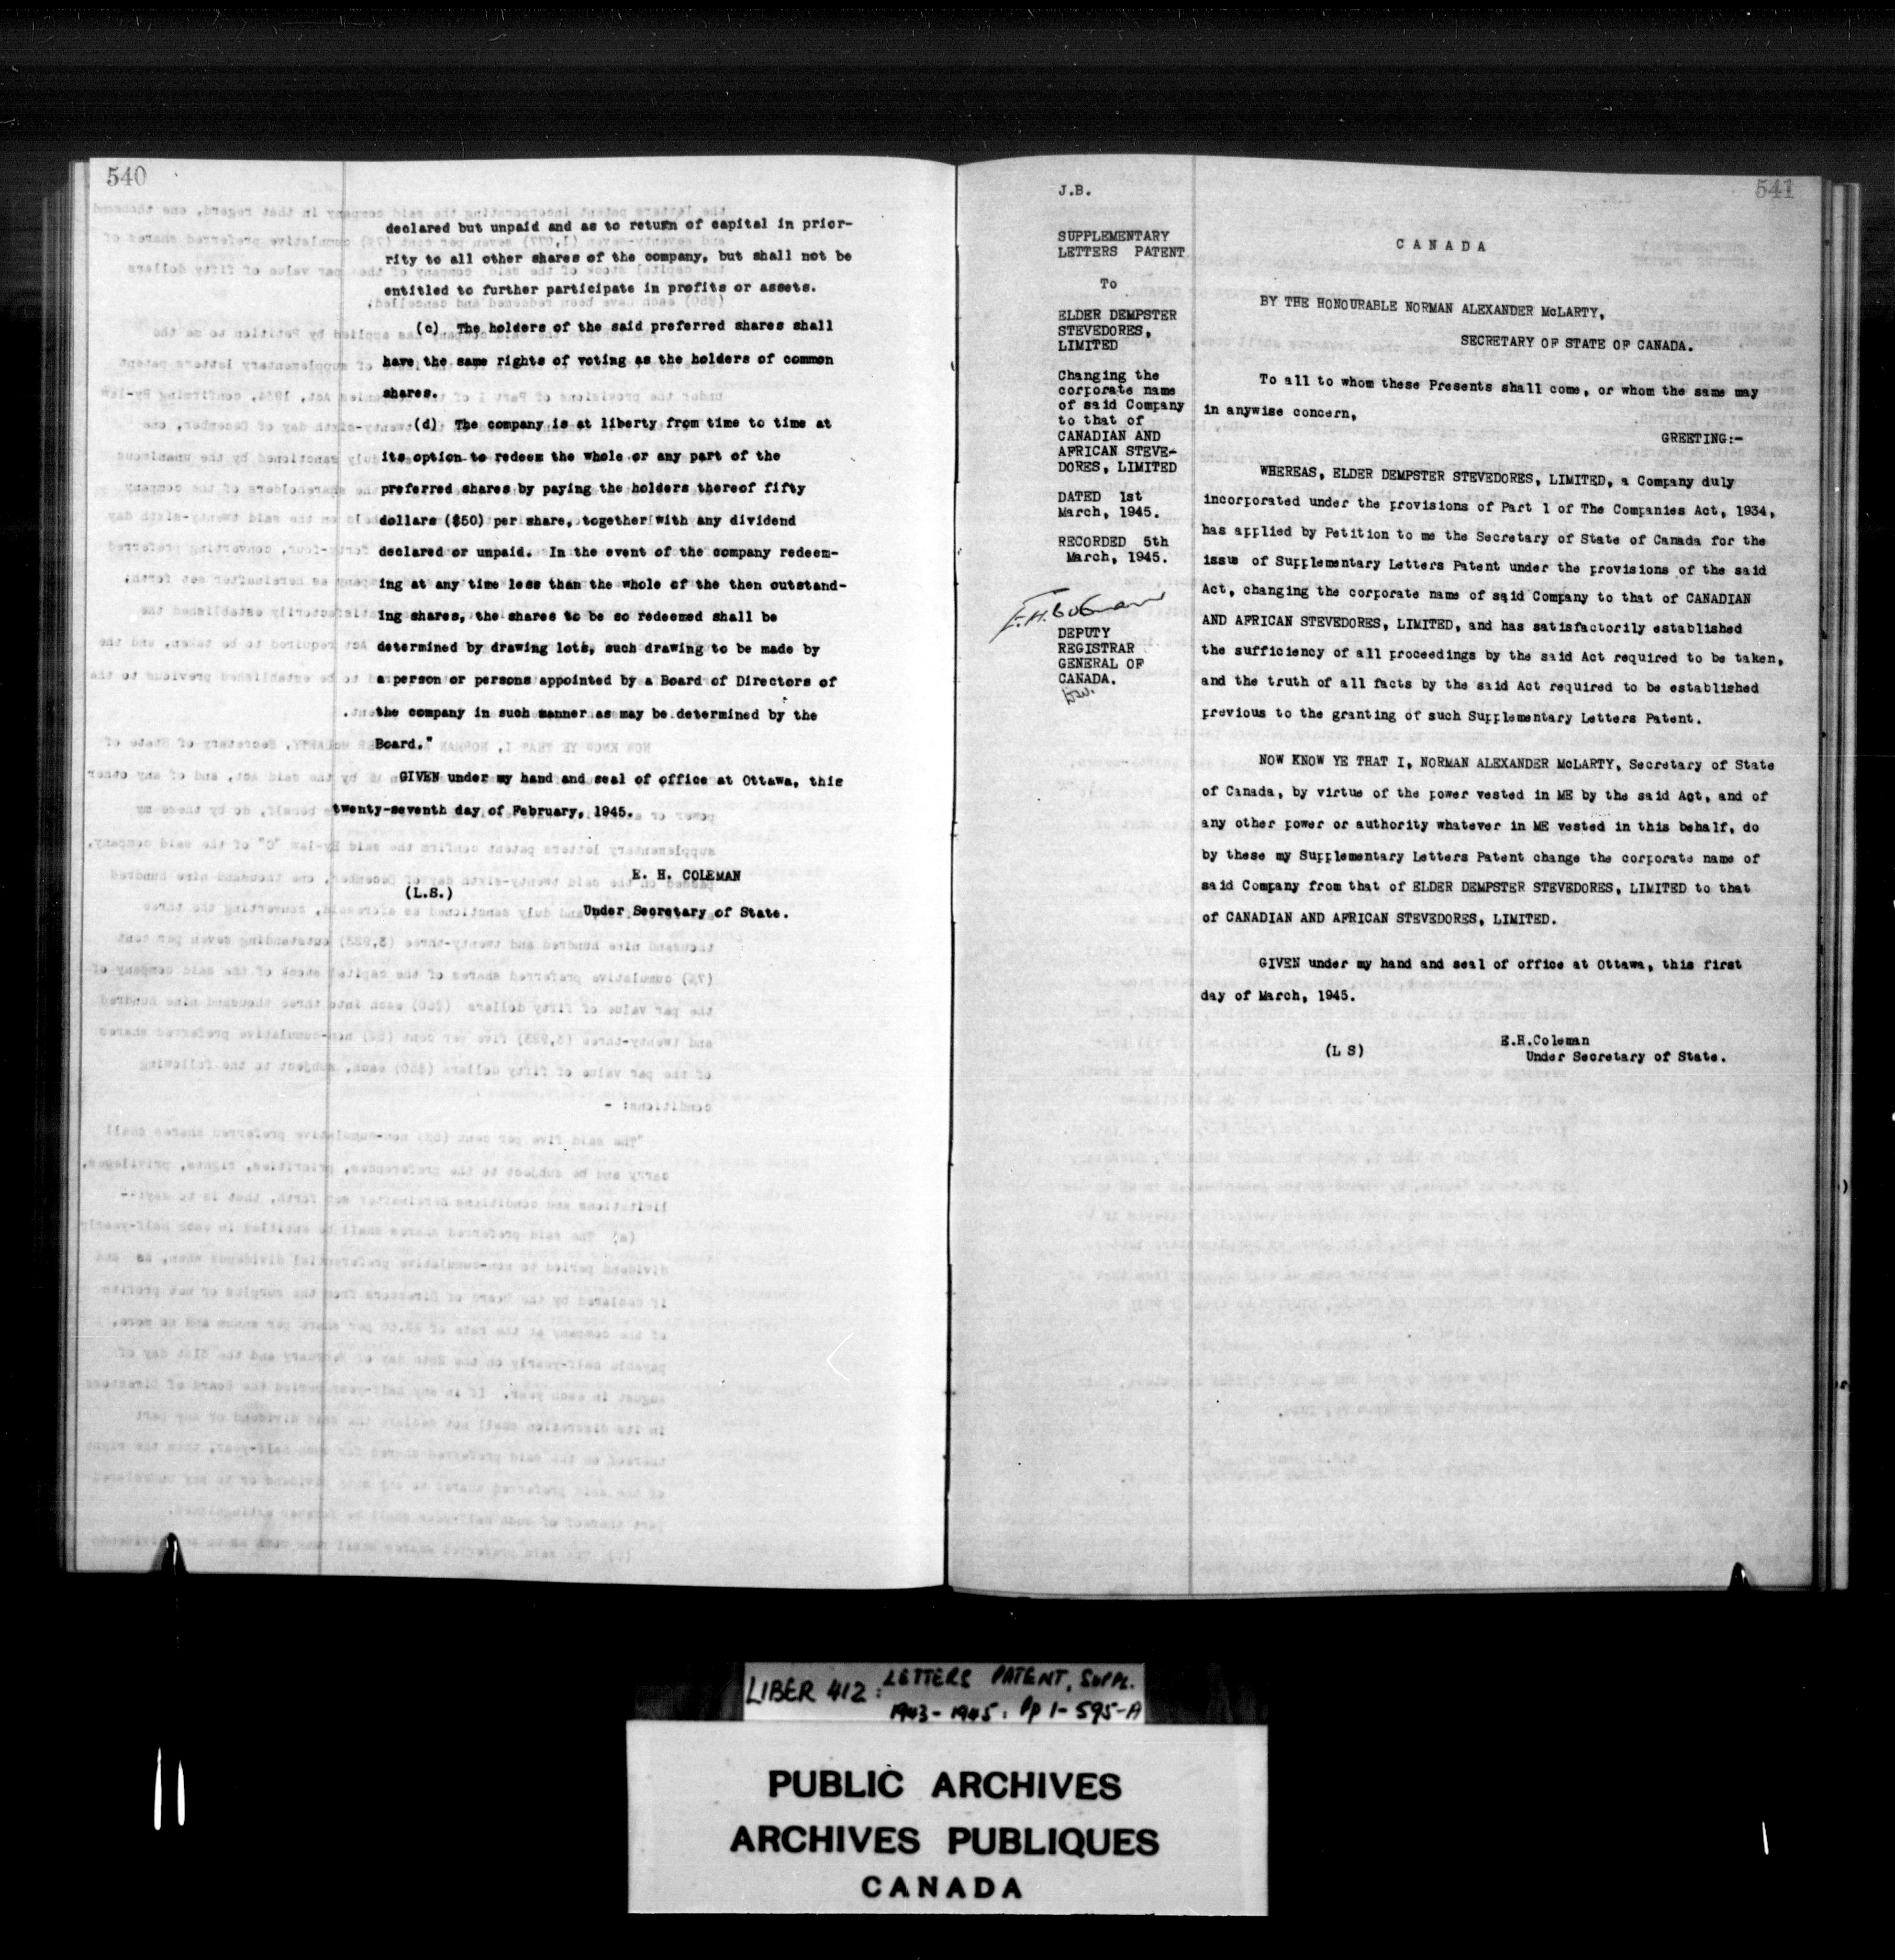 540
declared but unpaid and as to return of capital in prior-
rity to all other shares of the company, but shall not be
entitled to further participate in profits or assets.
(c) The holders of the said preferred shares shall
have the same rights of voting as the holders of common
shares.
(d) The company is at liberty from time to time at
its option to redeem the whole or any part of the
preferred shares by paying the holders thereof fifty
dollars ($50) per share, together with any dividend
declared or unpaid. In the event of the company redeem-
ing at any time less than the whole of the then outstand-
ing shares, the shares to be so redeemed shall be
determined by drawing lots, such drawing to be made by
a person or persons appointed by a Board of Directors of
the company in such manner as may be determined by the
Board."
GIVEN under my hand and seal of office at Ottawa, this
twenty-seventh day of February, 1945.
E. H. COLEMAN
(L.S.)
Under Secretary of State.
541
J.B.
SUPPLEMENTARY
LETTERS PATENT
To
ELDER DEMPSTER
STEVEDORES,
LIMITED
Changing the
corporate name
of said Company
to that of
CANADIAN AND
AFRICAN STEVE-
DORES, LIMITED
DATED 1st
March, 1945.
RECORDED 5th
March, 1945.
DEPUTY
REGISTRAR
GENERAL OF
CANADA.
CANADA
BY THE HONOURABLE NORMAN ALEXANDER McLARTY,
SECRETARY OF STATE OF CANADA.
To all to whom these Presents shall come, or whom the same may
in anywise concern,
GREETING:-
WHEREAS, ELDER DEMPSTER STEVEDORES, LIMITED, a Company duly
incorporated under the provisions of Part 1 of The Companies Act, 1934,
has applied by Petition to me the Secretary of State of Canada for the
issue of Supplementary Letters Patent under the provisions of the said
Act, changing the corporate name of said Company to that of CANADIAN
AND AFRICAN STEVEDORES, LIMITED, and has satisfactorily established
the sufficiency of all proceedings by the said Act required to be taken,
and the truth of all facts by the said Act required to be established
previous to the granting of such Supplementary Letters Patent.
NOW KNOW YE THAT I, NORMAN ALEXANDER McLARTY, Secretary of State
of Canada, by virtue of the power vested in ME by the said Act, and of
any other power or authority whatever in ME vested in this behalf, do
by these my Supplementary Letters Patent change the corporate name of
said Company from that of ELDER DEMPSTER STEVEDORES, LIMITED to that
of CANADIAN AND AFRICAN STEVEDORES, LIMITED.
GIVEN under my hand and seal of office at Ottawa, this first
day of March, 1945.
E.H.Coleman
(L S)
Under Secretary of State.
LIBER 412: LETTERS PATENT, SUPPL.
1943-1945: Pp 1-595-A
PUBLIC ARCHIVES
ARCHIVES PUBLIQUES
CANADA